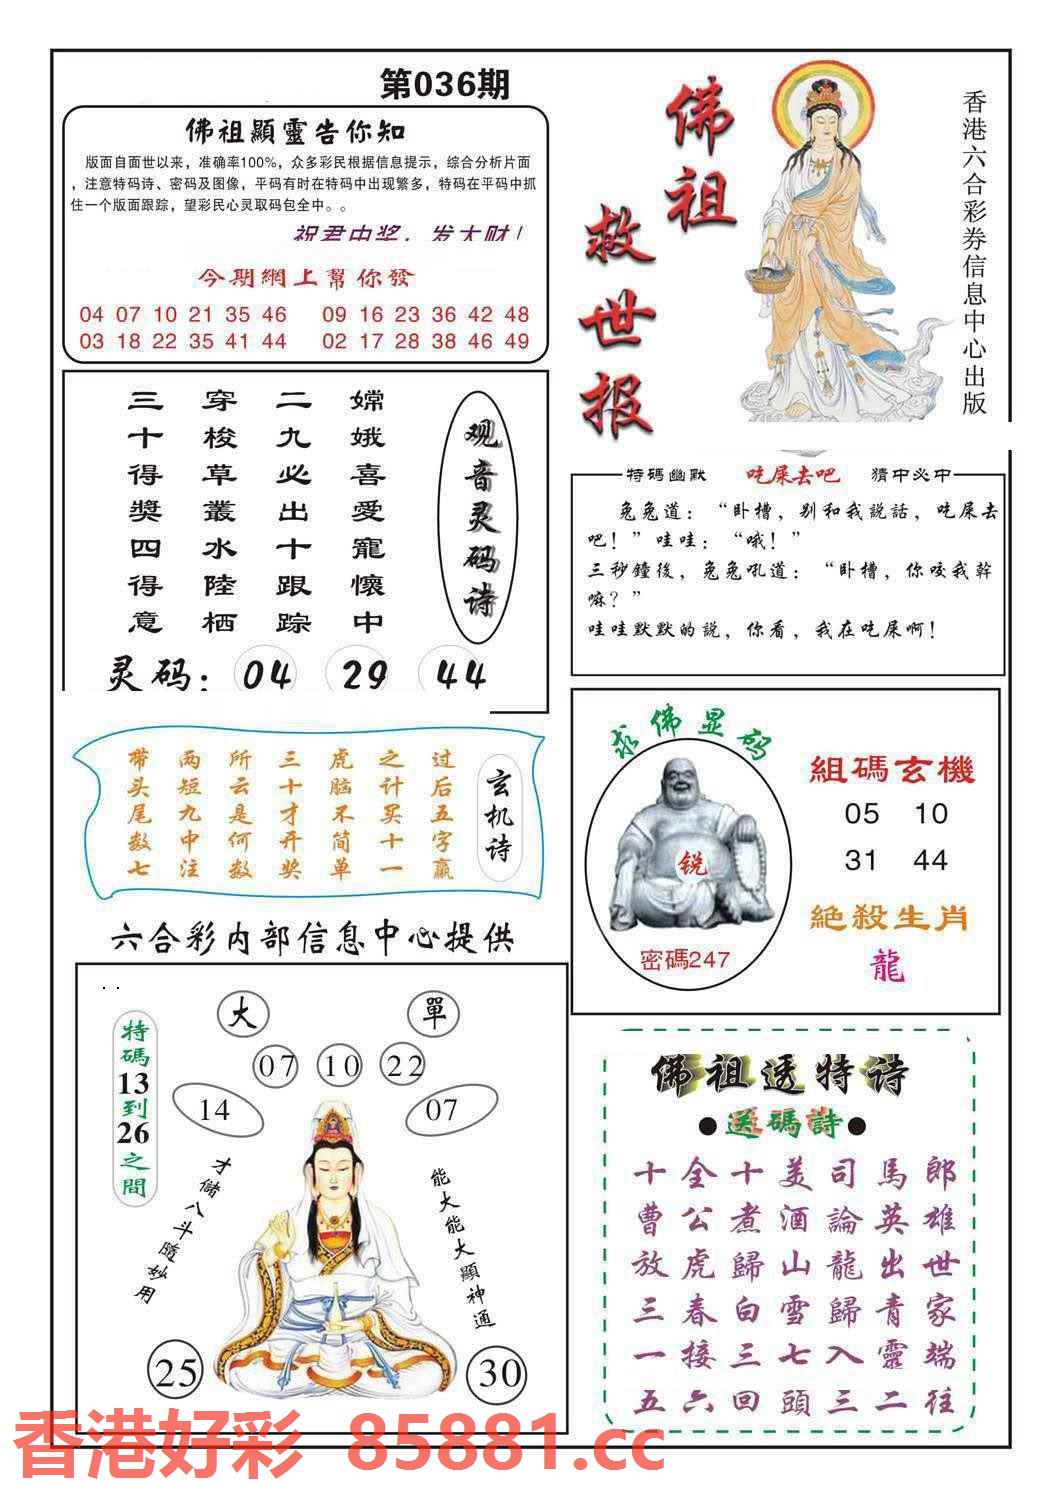 第036期
佛祖顯靈告你知
版面自面世以来，准确率100%，众多彩民根据信息提示，综合分析片面
，注意特码诗、密码及图像，平码有时在特码中出现繁多，特码在平码中抓
住一个版面跟踪，望彩民心灵取码包全中。。
祝君中奖，发大财！
今期網上幫你發
04 07 10 21 35 46 09 16 23 36 42 48
03 18 22 35 41 44 02 17 28 38 46 49
佛祖
救世报
香港六合彩券信息中心出版
观音灵码诗
嫦娥喜愛寵懷中
二九必出十跟踪
穿梭草叢水陸栖
三十得獎四得意
灵码：04 29 44
特碼幽默 吃屎去吧 猜中必中
兔兔道：“卧槽，别和我説話，吃屎去
吧！”哇哇：“哦！”
三秒鐘後，兔兔吼道：“卧槽，你咬我幹
嘛？”
哇哇默默的說，你看，我在吃屎啊！
玄机诗
过后五字赢
之计买十一
虎脑不简单
三十才开奖
所云是何数
两短九中注
带头尾数七
求佛显码
锐
密碼247
組碼玄機
05 10
31 44
絕殺生肖
龍
六合彩内部信息中心提供
大 單
07 10 22
14 07
特碼13到26之間
才儲八斗隨妙用
能大能大顯神通
25 30
佛祖透特诗
●送碼詩●
十全十美司馬郎
曹公煮酒論英雄
放虎歸山龍出世
三春白雪歸青家
一接三七入靈端
五六回頭三二往
香港好彩 85881.cc